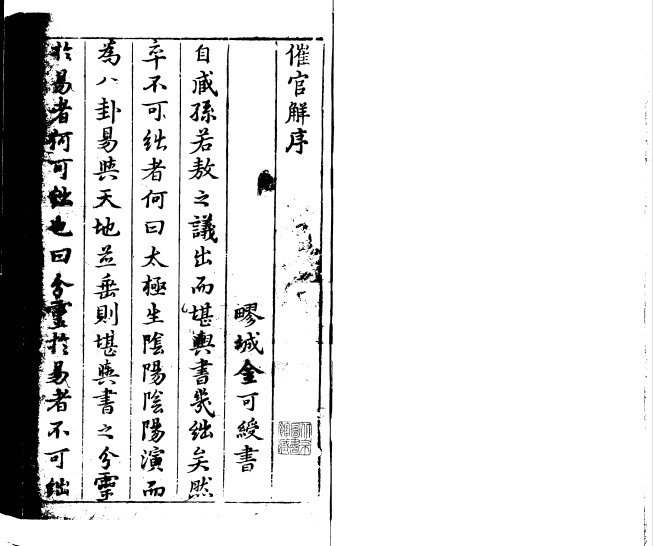 催官解序
疁城金可綬書
自臧孫若敖之議出而堪輿書幾絀矣然
卒不可絀者何曰太極生陰陽陰陽演而
為八卦易與天地並垂則堪輿書之分靈
於易者何可絀也曰分靈於易者不可絀